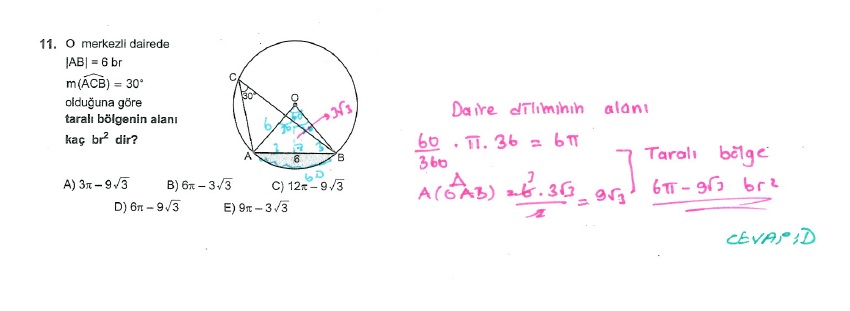 11. O merkezli dairede
|AB| = 6 br
m(ACB) = 30°
olduğuna göre
taralı bölgenin alanı
kaç br² dir?
C
30°
O
60
3√3
6
30
3
3
A
6
B
60
A) 3π – 9√3 B) 6π – 3√3 C) 12π – 9√3
D) 6π – 9√3 E) 9π – 3√3
Daire diliminin alanı
60/360 . π. 36 = 6π
A(OAB) = 6 . 3√3 / 2 = 9√3
3
Taralı bölge
6π – 9√3 br²
CEVAP : D